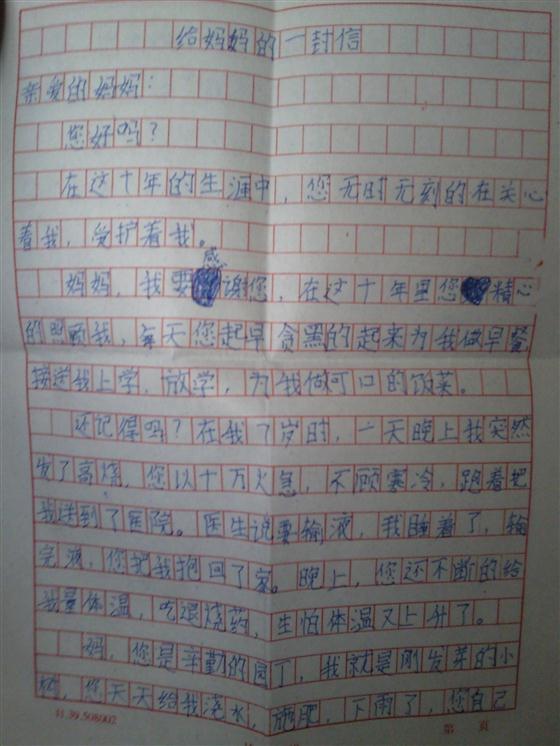 给妈妈的一封信
亲爱的妈妈：
您好吗？
在这十年的生涯中，您无时无刻的在关心
着我，受护着我。
妈妈，我要感谢您，在这十年里您精心
的照顾我，每天您起早贪黑的起来为我做早餐
接送我上学，放学，为我做可口的饭菜。
还记得吗？在我7岁时，一天晚上我突然
发了高烧，您以十万火急，不顾寒冷，跑着把
我送到了医院。医生说要输液，我睡着了，输
完液，您把我抱回了家。晚上，您还不断的给
我量体温，吃退烧药，生怕体温又上升了。
妈，您是辛勤的园丁，我就是刚发芽的小
树，您天天给我浇水，施肥，下雨了，您自己
11.39.508002
第 页